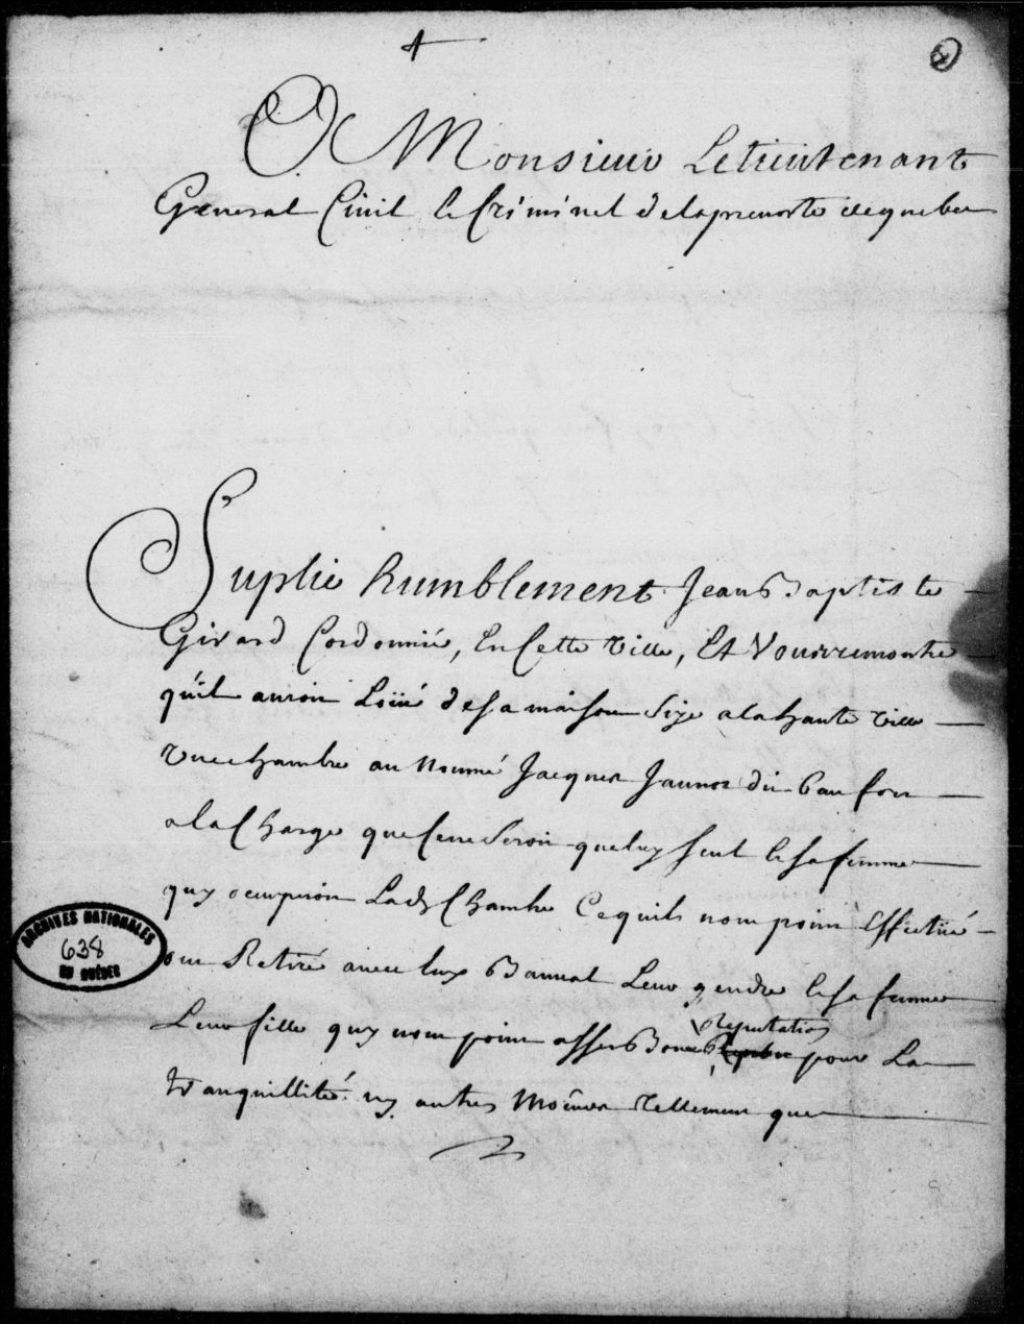 A Monsieur Le Lieutenant
General Civil le Criminel de la prevoste de quebec
Suplie humblement Jean Baptiste
Girard Cordonnié, En Cette ville, Et Vous remontre
qu'il auroit Loüé de sa maison Size a la haute ville
une chambre au nommé Jacques Jaunos dit
a la Charge que ce ne seroit que luy seul et sa femme
quy ocuperoit Lad. Chambre Ce quils nont point Effectué
ont Retiré avec lux Banual Leur gendre et sa femme
Leur fille quy nont point asses Bonne Reputation pour La
tranquillité ny autres Moeurs tellement que
ARCHIVES NATIONALES
638
DU QUÉBEC